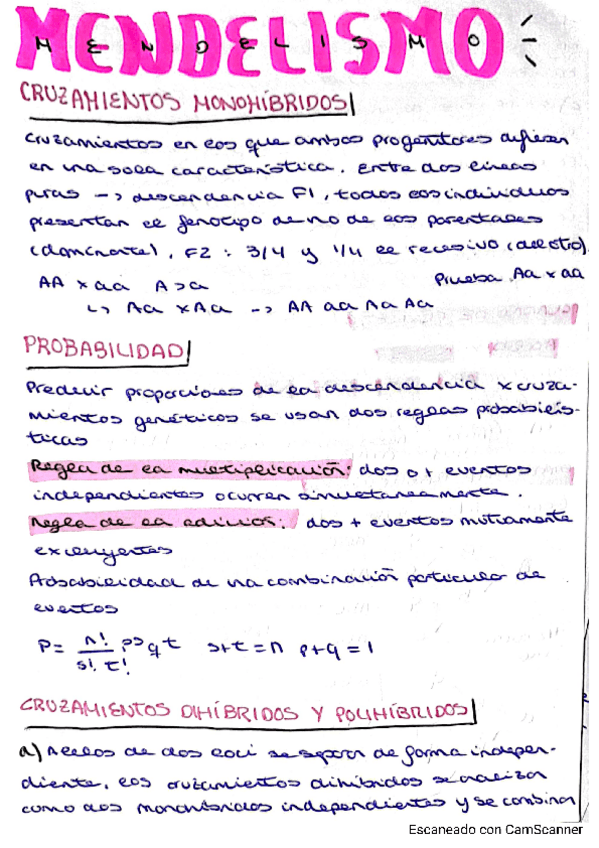 MENDELISMO
MENDELISMO
CRUZAMIENTOS MONOHÍBRIDOS
Cruzamientos en los que ambos progenitores difieren
en una sola característica. Entre dos líneas
puras -> descendencia F1, todos los individuos
presentan el fenotipo de uno de los parentales
(dominante), F2: 3/4 y 1/4 el recesivo (del otro).
AA x aa A>a Prueba. Aa x aa
↳ Aa x Aa -> AA aa Aa Aa
PROBABILIDAD
Predecir proporciones de la descendencia x cruza-
mientos genéticos se usan dos reglas probabilís-
ticas
Regla de la multiplicación: dos o + eventos
independientes ocurren simultáneamente.
Regla de la adición: dos + eventos mutuamente
excluyentes
Probabilidad de una combinación particular de
eventos
P= n!/s! t! p^s q^t s+t=n p+q=1
CRUZAMIENTOS DIHÍBRIDOS Y POLIHÍBRIDOS
a) Alelos de dos loci se separan de forma indepen-
diente, los cruzamientos dihíbridos se analizan
como dos monohíbridos independientes y se combinan
Escaneado con CamScanner